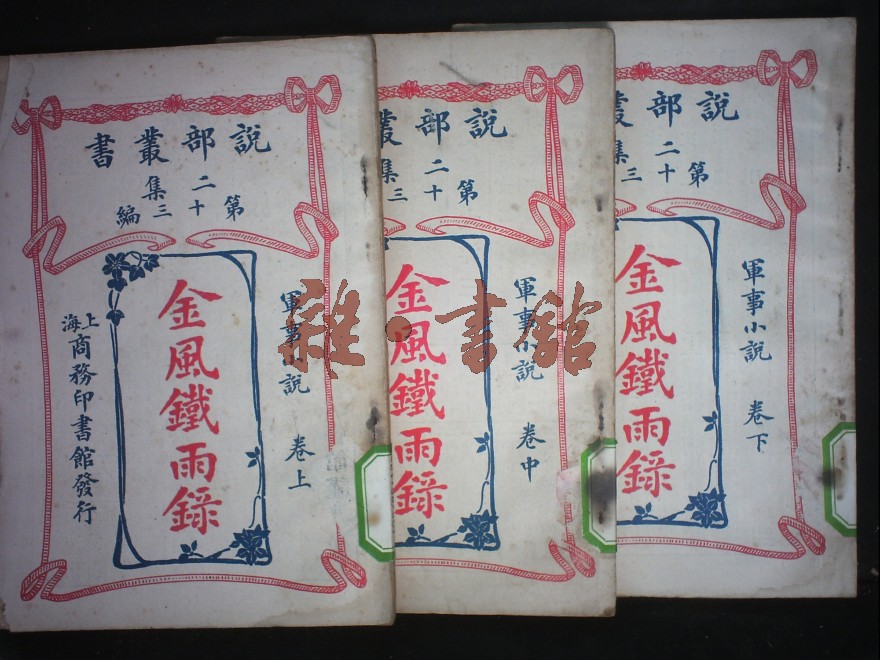 說部叢書
第二集
十三編
軍事小說 卷上
金風鐵雨錄
上海商務印書館發行
說部叢
第二集
十三
軍事小說 卷中
金風鐵雨錄
說部叢
第二集
十三
軍事小說 卷下
金風鐵雨錄
雜·書館